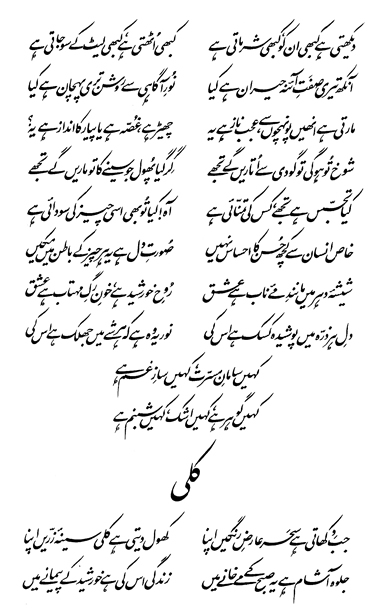 دیکھتی ہے کبھی ان کو کبھی شرماتی ہے کبھی اٹھتی ہے کبھی لیٹ کے سو جاتی ہے
آنکھ تیری صفتِ آئنہ حیران ہے کیا نورِ آگاہی سے روشن تری پہچان ہے کیا
مارتی ہے انھیں پونہچوں سے، عجب ناز ہے یہ چھیڑ ہے، غصّہ ہے یا پیار کا انداز ہے یہ؟
شوخ تو ہوگی تو گودی سے اتاریں گے تجھے گر گیا پھول جو سینے کا تو ماریں گے تجھے
کیا تجسس ہے تجھے، کس کی تمنائی ہے آہ! کیا تو بھی اسی چیز کی سودائی ہے
خاص انسان سے کچھ حسن کا احساس نہیں صورتِ دل ہے یہ ہر چیز کے باطن میں مکیں
شیشۂ دہر میں مانندِ مئے ناب ہے عشق روحِ خورشید ہے، خونِ رگِ مہتاب ہے عشق
دلِ ہر ذرہ میں پوشیدہ کسک ہے اس کی نور یہ وہ ہے کہ ہر شے میں جھلک ہے اس کی
کہیں سامانِ مسرت، کہیں سازِ غم ہے
کہیں گوہر ہے، کہیں اشک، کہیں شبنم ہے
کلی
جب دکھاتی ہے سحر عارضِ رنگیں اپنا کھول دیتی ہے کلی سینۂ زرّیں اپنا
جلوہ آشام ہے یہ صبح کے مے خانے میں زندگی اس کی ہے خورشید کے پیمانے میں